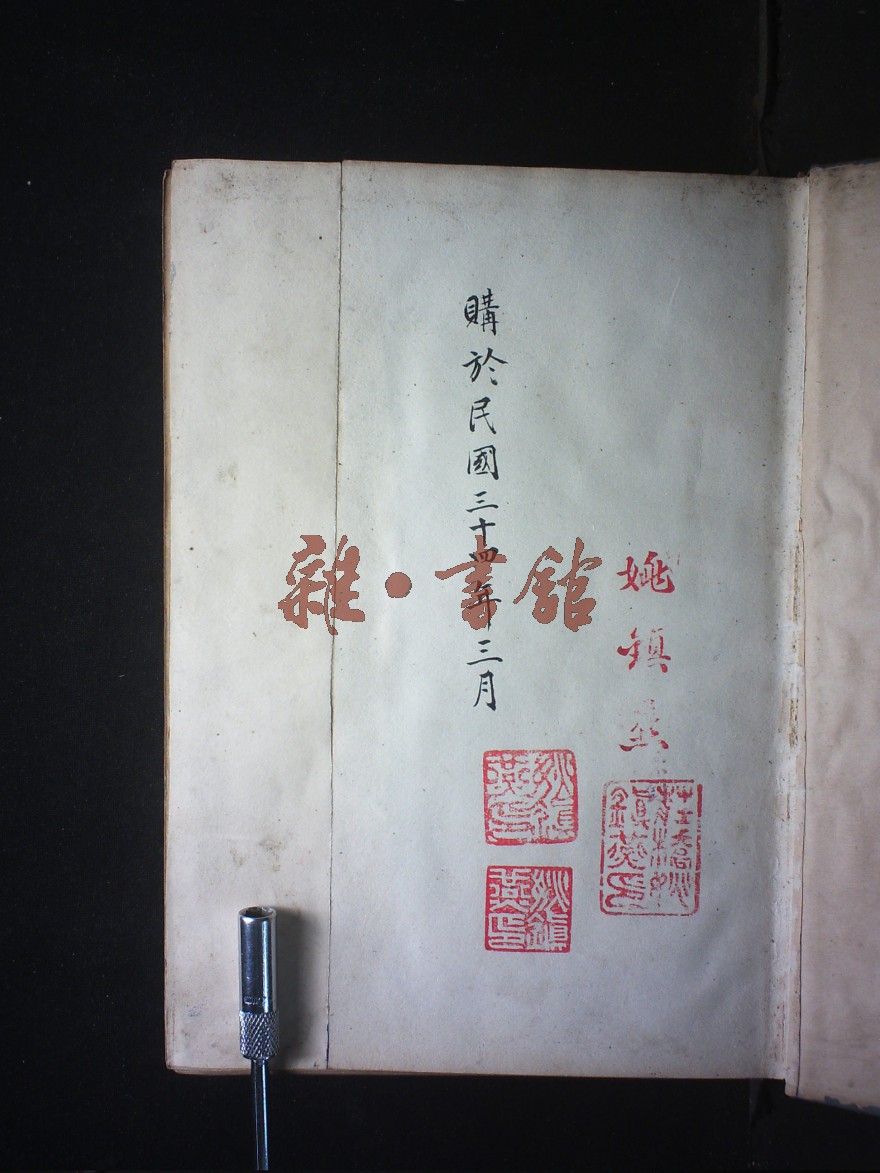 姚鎮燕
購於民國三十四年三月
雜·書館
姚鎮燕印
姚鎮燕印